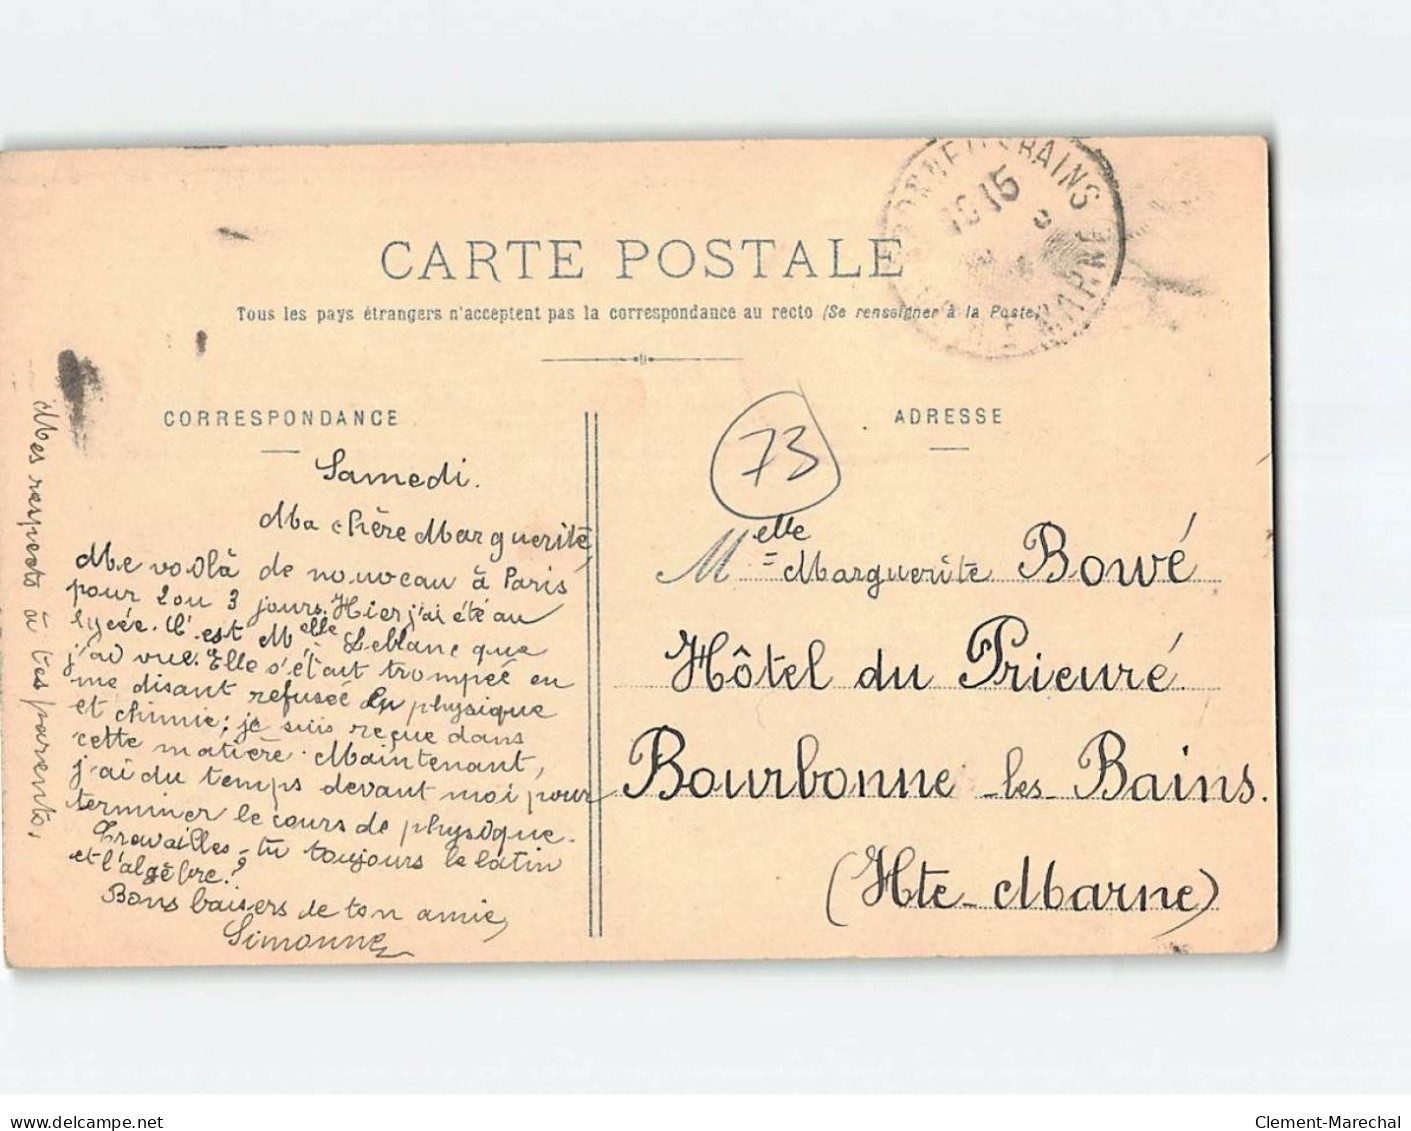 CARTE POSTALE
Tous les pays étrangers n'acceptent pas la correspondance au recto (Se renseigner à la Poste)
CORRESPONDANCE
Samedi.
Ma chère Marguerite,
Me voilà de nouveau à Paris
pour 2 ou 3 jours. Hier j'ai été au
lycée. C'est Melle Leblanc que
j'ai vue. Elle s'était trompée en
me disant refusée en physique
et chimie; je suis reçue dans
cette matière. Maintenant,
j'ai du temps devant moi pour
terminer le cours de physique.
Travailles-tu toujours le latin
et l'algèbre?
Bons baisers de ton amie,
Simonne
Mes respects à tes parents.
ADRESSE
73
Melle Marguerite Bowé
Hôtel du Prieuré
Bourbonne-les-Bains.
(Hte-Marne)
BAINS
MARNE
delcampe.net
Clement-Marechal